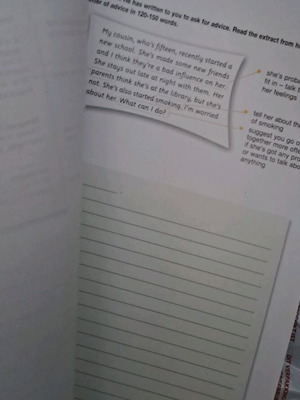 He has written to you to ask for advice. Read the extract from
of advice in 120-150 words.
My cousin, who's fifteen, recently started a
new school. She's made some new friends
and I think they're a bad influence on her.
She stays out late at night with them. Her
parents think she's at the library, but she's
not. She's also started smoking. I'm worried
about her. What can I do?
she's
fit in – talk
her feelings
tell her about
of smoking
suggest you go
together more
if she's got any
or wants to talk
anything